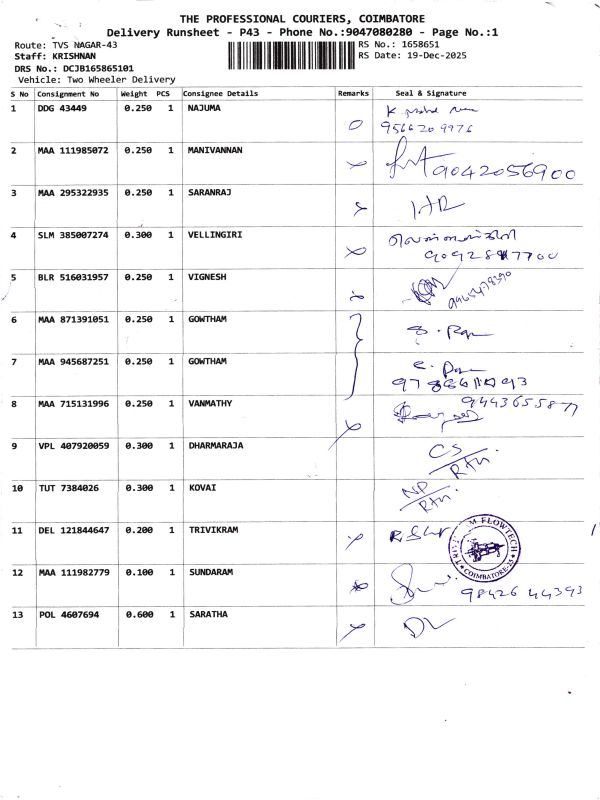 THE PROFESSIONAL COURIERS, COIMBATORE
Delivery Runsheet - P43 - Phone No.:9047080280 - Page No.:1
Route: TVS NAGAR-43 RS No.: 1658651
Staff: KRISHNAN RS Date: 19-Dec-2025
DRS No.: DCJB165865101
Vehicle: Two Wheeler Delivery
S No Consignment No Weight PCS Consignee Details Remarks Seal & Signature
1 DDG 43449 0.250 1 NAJUMA
9566209976
2 MAA 111985072 0.250 1 MANIVANNAN
9042056900
3 MAA 295322935 0.250 1 SARANRAJ
4 SLM 385007274 0.300 1 VELLINGIRI
9092897700
5 BLR 516031957 0.250 1 VIGNESH
6 MAA 871391051 0.250 1 GOWTHAM
7 MAA 945687251 0.250 1 GOWTHAM
8 MAA 715131996 0.250 1 VANMATHY
9443655877
9 VPL 407920059 0.300 1 DHARMARAJA CS/RTN.
10 TUT 7384026 0.300 1 KOVAI NP/RTN.
11 DEL 121844647 0.200 1 TRIVIKRAM
FLOWTECH
COIMBATORE-25
12 MAA 111982779 0.100 1 SUNDARAM
98426 44393
13 POL 4607694 0.600 1 SARATHA